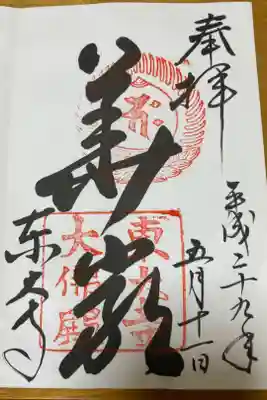 奉拝
平成二十九年
五月十一日
華厳
東大寺
東大寺
大佛殿